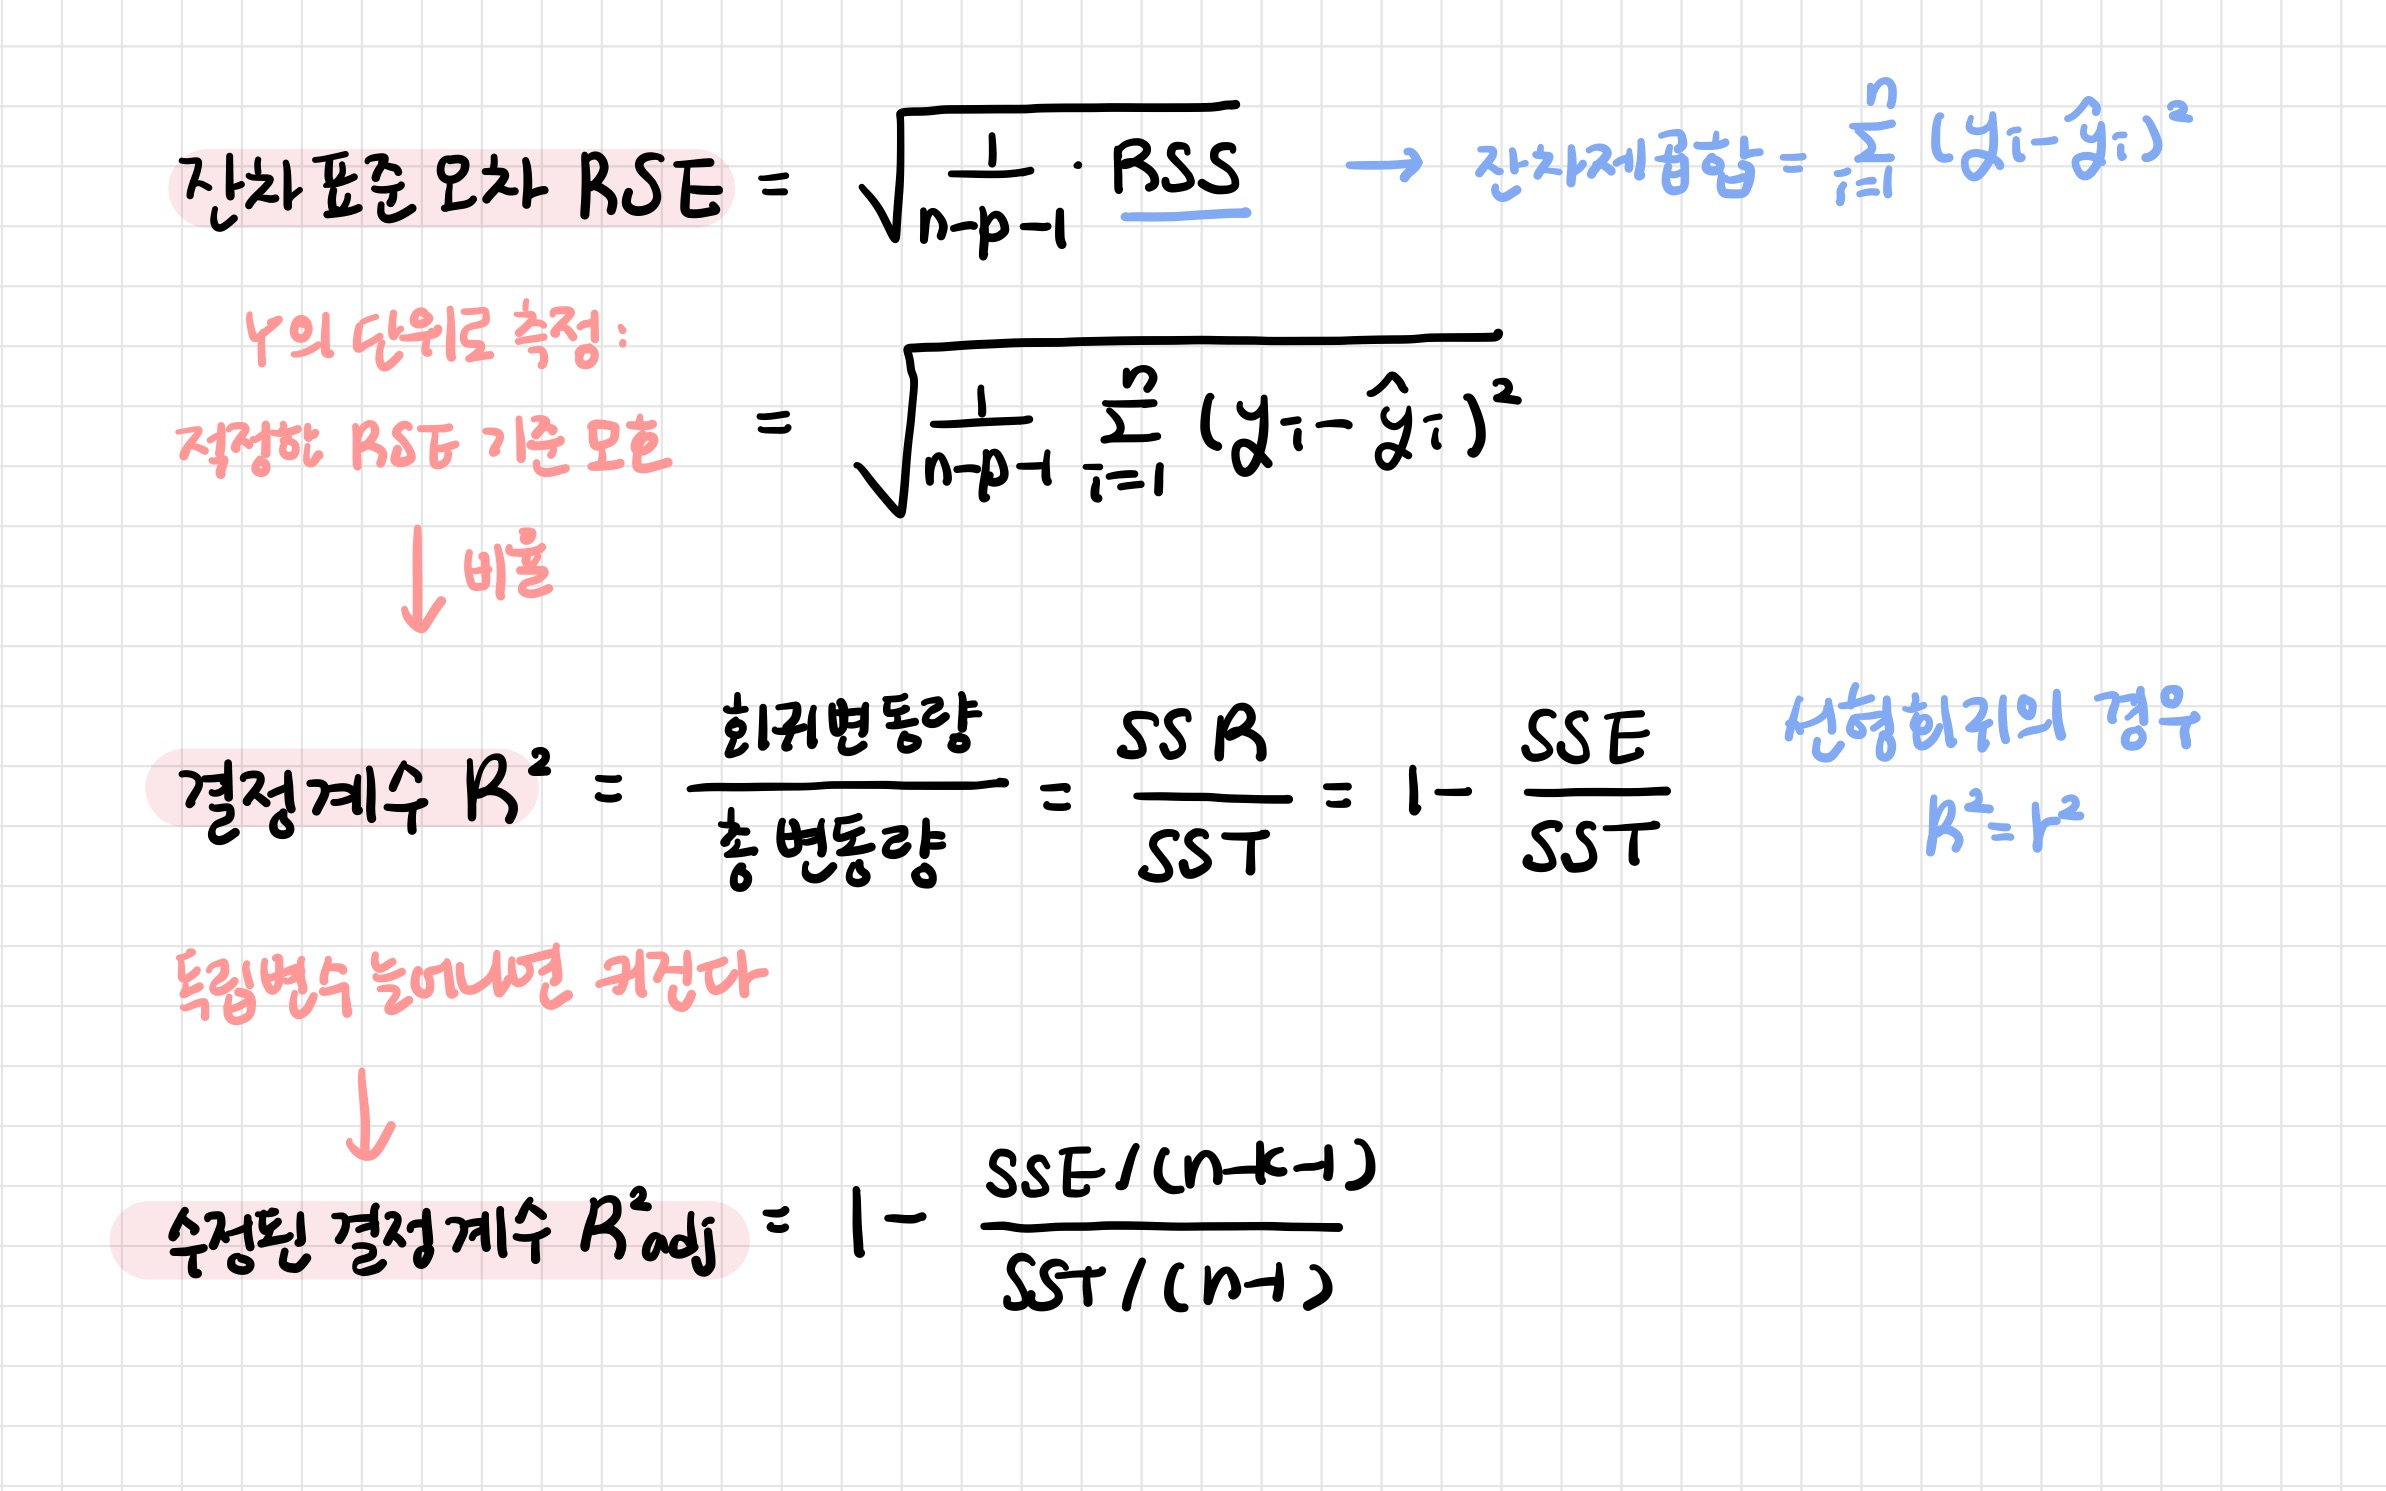 잔차 표준 오차 RSE = √(1/(n-p-1) · RSS) → 잔차제곱합 = Σ_{i=1}^{n} (y_i - ŷ_i)²
Y의 단위로 측정:
적절한 RSE 기준 모호
= √(1/(n-p-1) Σ_{i=1}^{n} (y_i - ŷ_i)²)
↓ 비율
결정계수 R² = 회귀변동량/총 변동량 = SSR/SST = 1 - SSE/SST
선형회귀의 경우
R² = r²
독립변수 늘어나면 커진다
↓
수정된 결정계수 R²adj = 1 - (SSE/(n-k-1))/(SST/(n-1))